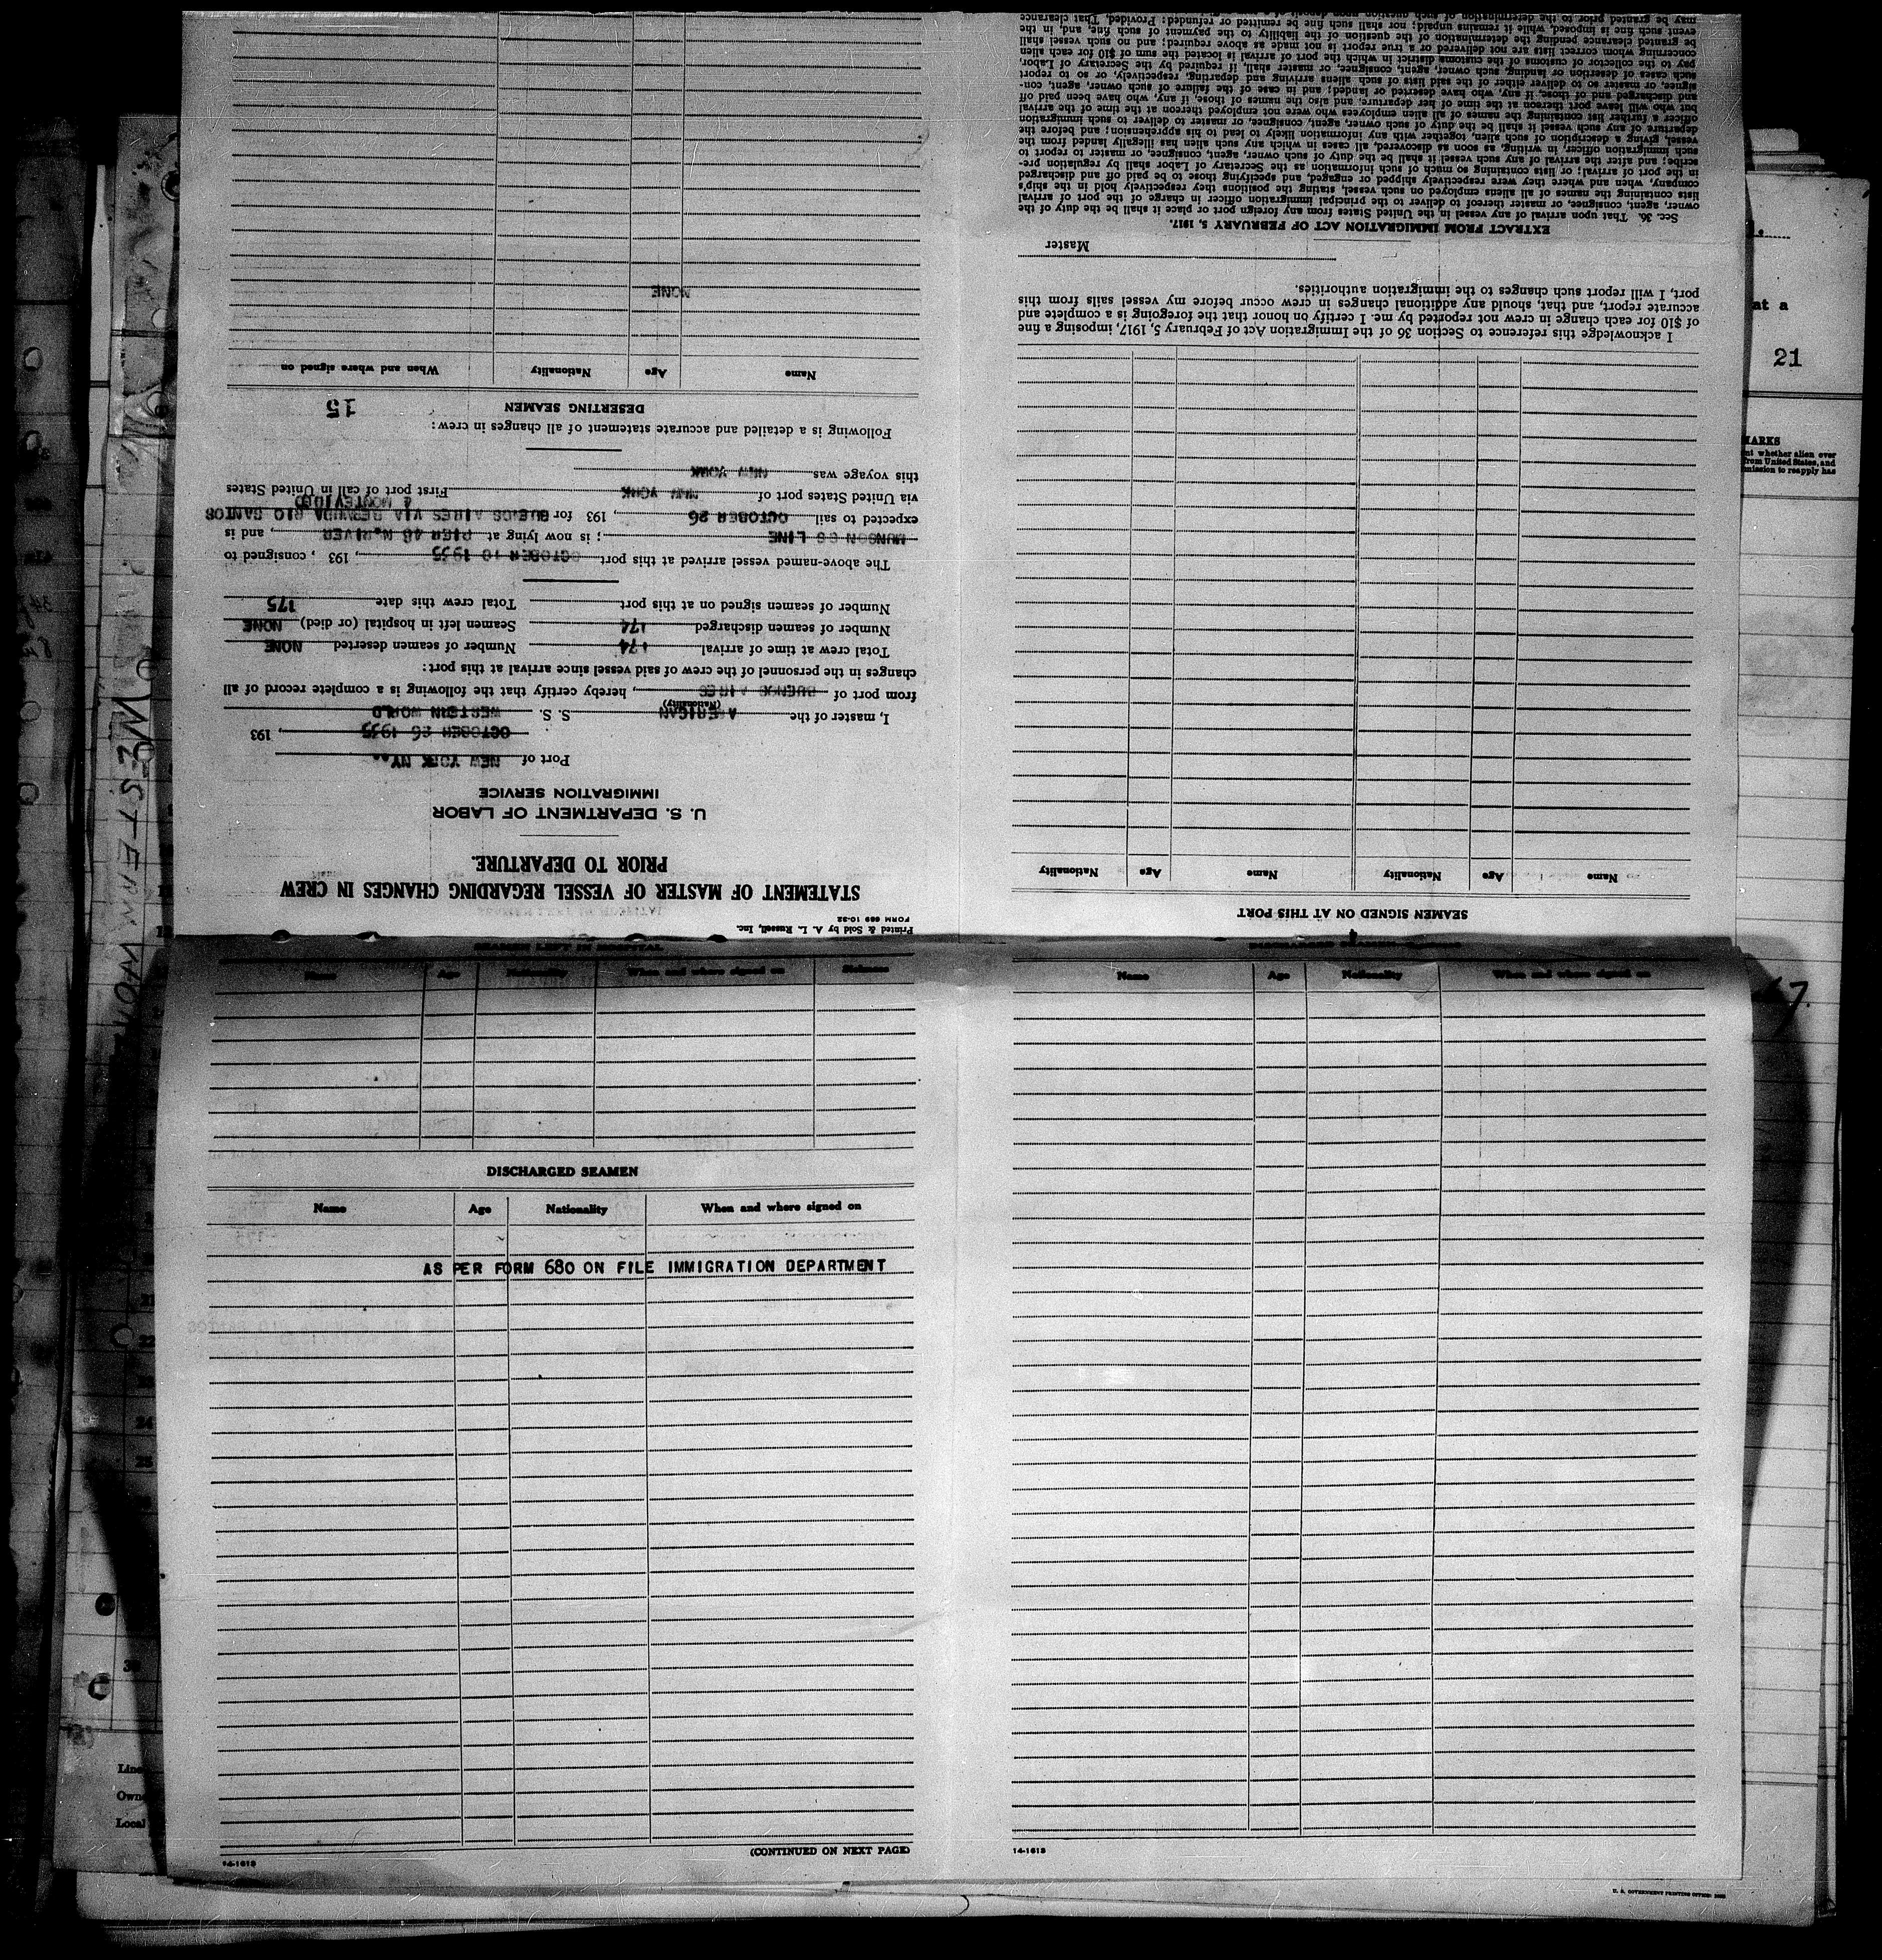 Printed & Sold by A. L. Russell, Inc.
FORM 689 10-32
STATEMENT OF MASTER OF VESSEL REGARDING CHANGES IN CREW
PRIOR TO DEPARTURE.
U. S. DEPARTMENT OF LABOR
IMMIGRATION SERVICE
Port of NEW YORK NY
OCTOBER 26 1935, 193
I, master of the AMERICAN S. S. WESTERN WORLD
(Nationality)
from port of BUENOS AIRES, hereby certify that the following is a complete record of all
changes in the personnel of the crew of said vessel since arrival at this port:
Total crew at time of arrival 174 Number of seamen deserted NONE
Number of seamen discharged 174 Seamen left in hospital (or died) NONE
Number of seamen signed on at this port Total crew this date 175
The above-named vessel arrived at this port OCTOBER 10 1935, 193 , consigned to
MUNSON SS LINE ; is now lying at PIER 48 N. RIVER, and is
expected to sail OCTOBER 26, 193 for BUENOS AIRES VIA BERMUDA RIO SANTOS
& MONTEVIDEO
via United States port of NEW YORK First port of call in United States
this voyage was NEW YORK
Following is a detailed and accurate statement of all changes in crew:
DESERTING SEAMEN
15
Name Age Nationality When and where signed on
NONE
SEAMEN SIGNED ON AT THIS PORT
Name Age Nationality Name Age Nationality
I acknowledge this reference to Section 36 of the Immigration Act of February 5, 1917, imposing a fine
of $10 for each change in crew not reported by me. I certify on honor that the foregoing is a complete and
accurate report, and that, should any additional changes in crew occur before my vessel sails from this
port, I will report such changes to the immigration authorities.
Master
EXTRACT FROM IMMIGRATION ACT OF FEBRUARY 5, 1917.
Sec. 36. That upon arrival of any vessel in the United States from any foreign port or place it shall be the duty of the
owner, agent, consignee, or master thereof to deliver to the principal immigration officer in charge of the port of arrival
lists containing the names of all aliens employed on such vessel, stating the positions they respectively hold in the ship's
company, when and where they were respectively shipped or engaged, and specifying those to be paid off and discharged
in the port of arrival; or lists containing so much of such information as the Secretary of Labor shall by regulation pre-
scribe; and after the arrival of any such vessel it shall be the duty of such owner, agent, consignee, or master to report to
such immigration officer, in writing, as soon as discovered, all cases in which any such alien has illegally landed from the
vessel, giving a description of such alien, together with any information likely to lead to his apprehension; and before the
departure of any such vessel it shall be the duty of such owner, agent, consignee, or master to deliver to such immigration
officer a further list containing the names of all alien employees who were not employed thereon at the time of the arrival
but who will leave port thereon at the time of her departure, and also the names of those, if any, who have been paid off
and discharged and of those, if any, who have deserted or landed; and in case of the failure of such owner, agent, con-
signee, or master so to deliver either of the said lists of such aliens arriving and departing, respectively, or so to report
such cases of desertion or landing, such owner, agent, consignee, or master shall, if required by the Secretary of Labor,
pay to the collector of customs of the customs district in which the port of arrival is located the sum of $10 for each alien
concerning whom correct lists are not delivered or a true report is not made as above required; and no such vessel shall
be granted clearance pending the determination of the question of the liability to the payment of such fine, and, in the
event such fine is imposed, while it remains unpaid; nor shall such fine be remitted or refunded: Provided, That clearance
may be granted prior to the determination of such question upon deposit of a
SEAMEN LEFT IN HOSPITAL
Name Age Nationality When and where signed on Sickness
DISCHARGED SEAMEN
Name Age Nationality When and where signed on
AS PER FORM 680 ON FILE IMMIGRATION DEPARTMENT
(CONTINUED ON NEXT PAGE)
14-1613
Name Age Nationality When and where signed on
14-1613
U. S. GOVERNMENT PRINTING OFFICE
WESTERN WO
at a
21
ARKS
nt whether alien over
from United States, and
mission to reapply has
7.
22
24
25
30
Line
Owne
Local